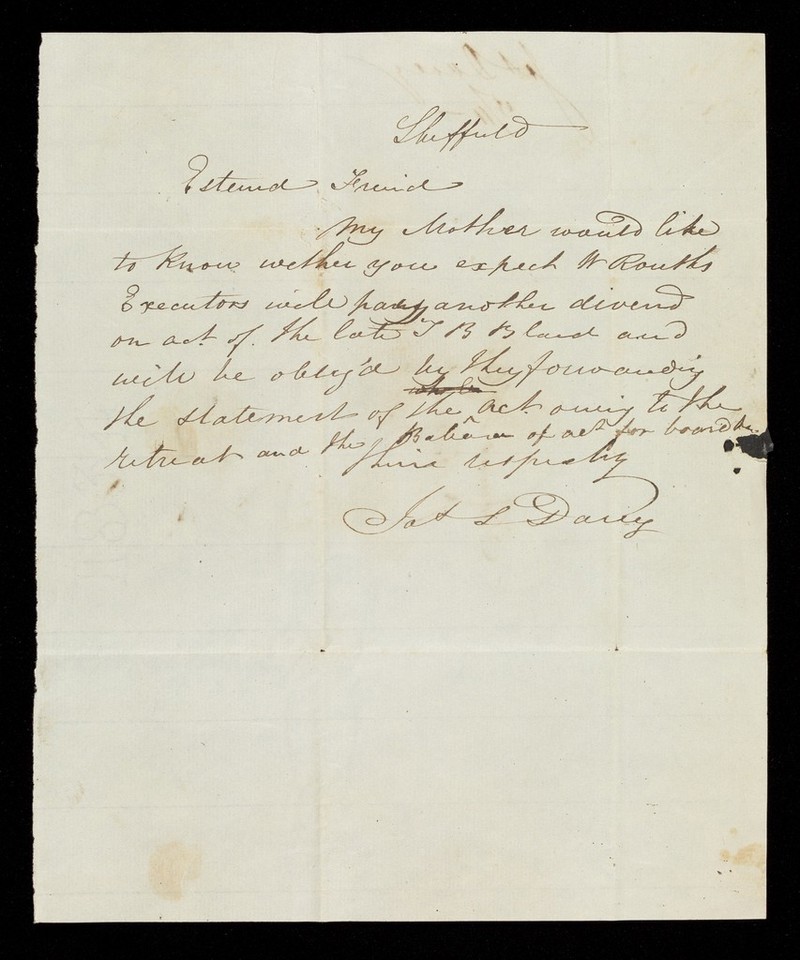 Sheffield
Estemd Freind
My Mother would like
to know wether you expect W Rouths
Executors will pay another divend
on act. of. the late T B Bland and
will be oblig'd by thy forwarding
the statement of the act. owing to the
retreat and the Balance of act for board &c.
thine respectly
Jos S Davy